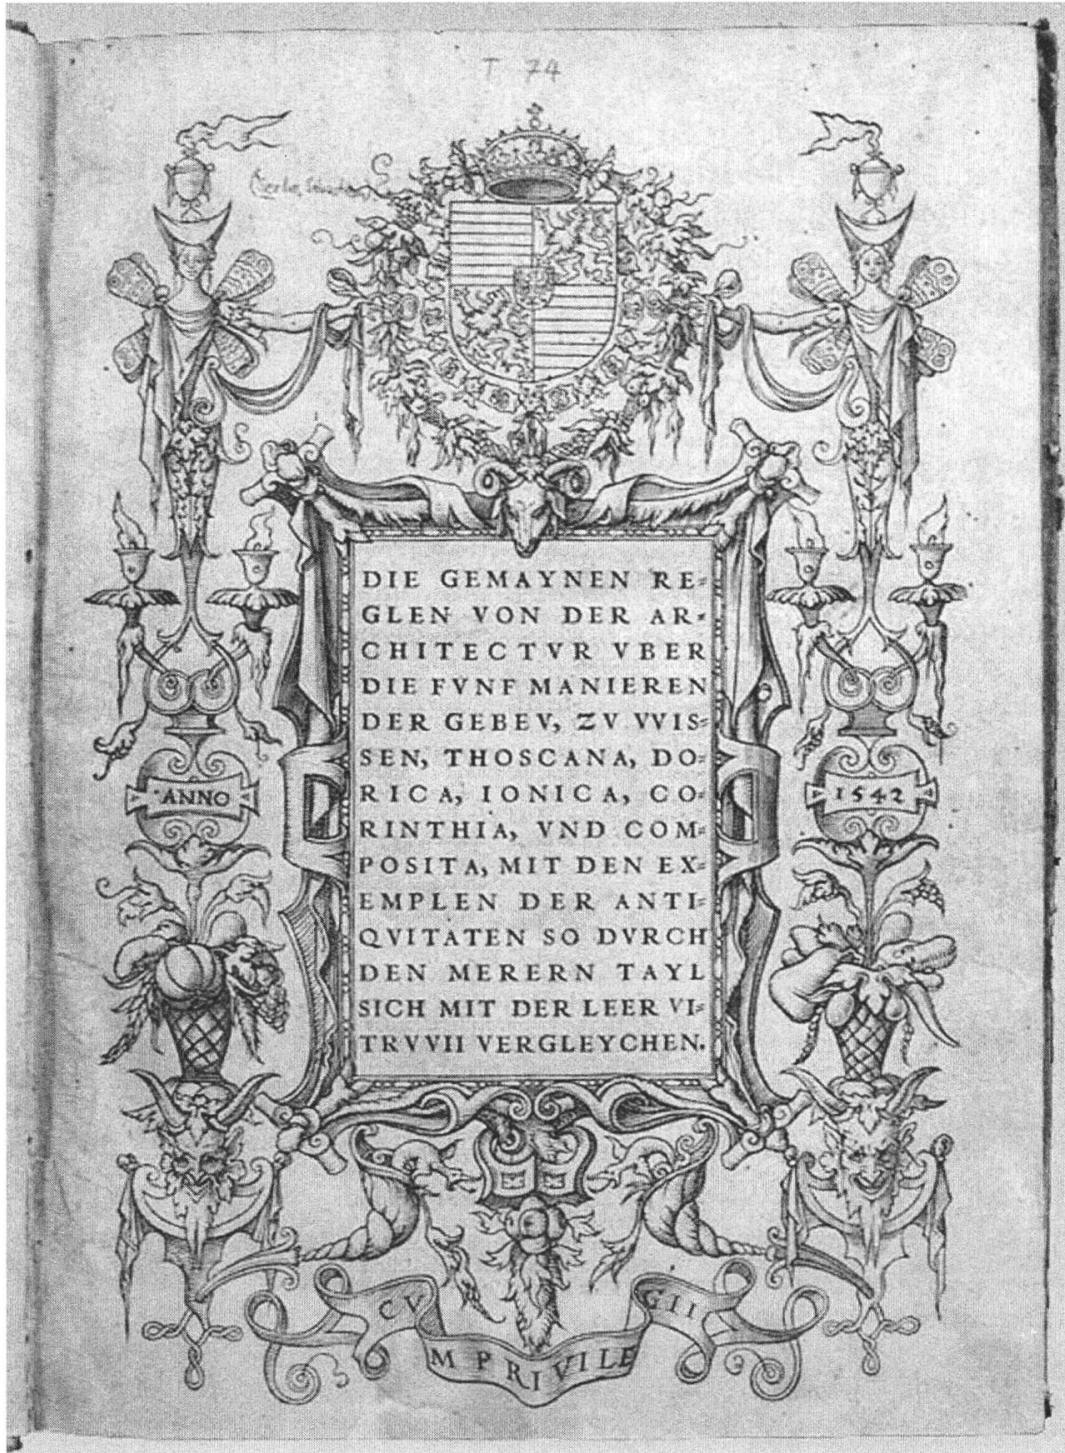 T 74
DIE GEMAYNEN RE=
GLEN VON DER AR=
CHITECTVR VBER
DIE FVNF MANIEREN
DER GEBEV, ZV VVIS=
SEN, THOSCANA, DO=
RICA, IONICA, CO=
RINTHIA, VND COM=
POSITA, MIT DEN EX=
EMPLEN DER ANTI=
QVITATEN SO DVRCH
DEN MERERN TAYL
SICH MIT DER LEER VI=
TRVVII VERGLEYCHEN.
ANNO
1542
CVM PRIVILEGII